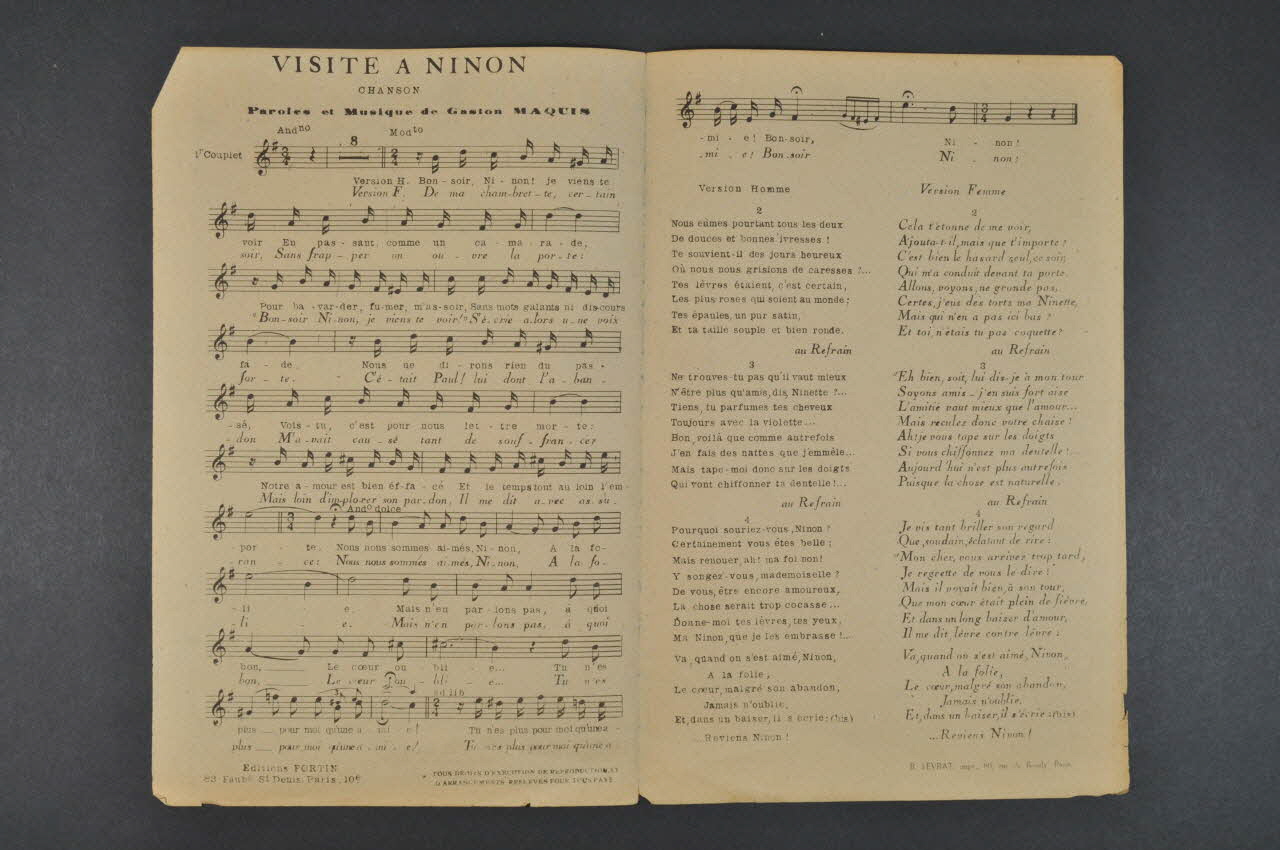 VISITE A NINON
CHANSON
Paroles et Musique de Gaston MAQUIS
And^no 8 Mod^to
1^r Couplet
Version H. Bon - soir, Ni - non! je viens te
Version F. De ma cham-bret - te, cer - tain
voir En pas - sant comme un ca - ma - ra - de,
soir, Sans frap - per on ou - vre la por - te:
Pour ba - var-der, fu-mer, m'as-soir, Sans mots galants ni discours
"Bon-soir Ni-non, je viens te voir!" S'é-crie a-lors u-ne voix
fa - de. Nous ne di - rons rien du pas -
for - te. C'é - tait Paul! lui dont l'a-ban -
- sé, Vois - tu, c'est pour nous let - tre mor - te:
- don M'a - vait cau - sé tant de souf - fran - cer
Notre a - mour est bien ef - fa - cé Et le temps tout au loin l'em -
Mais loin d'im-plo-rer son par-don, Il me dit a-vec as-su -
And^o dolce
por - te. Nous nous sommes ai-més, Ni - non, A la fo -
- ran - ce: Nous nous sommes ai-més, Ni - non, A la fo -
- li e. Mais n'en par - lons pas, à quoi
- li e. Mais n'en par - lons pas, à quoi
bon, Le cœur ou - bli - e... Tu n'es
bon, Le cœur ou - bli - e... Tu n'es
ad lib
plus pour moi qu'une a - mi - e! Tu n'es plus pour moi qu'une a -
plus pour moi qu'une a - mi - e! Tu n'es plus pour moi qu'une a
Editions FORTIN
83 Faub^g St Denis, Paris, 10^e
TOUS DROITS D'EXECUTION DE REPRODUCTION ET
D'ARRANGEMENTS RESERVES POUR TOUS PAYS.
- mi - e! Bon-soir, Ni - non!
- mi - e! Bon-soir Ni - non!
Version Homme
2
Nous eûmes pourtant tous les deux
De douces et bonnes ivresses!
Te souvient-il des jours heureux
Où nous nous grisions de caresses?...
Tes lèvres étaient, c'est certain,
Les plus roses qui soient au monde;
Tes épaules, un pur satin,
Et ta taille souple et bien ronde.
au Refrain
3
Ne trouves-tu pas qu'il vaut mieux
N'être plus qu'amis, dis, Ninette?...
Tiens, tu parfumes tes cheveux
Toujours avec la violette...
Bon, voilà que comme autrefois
J'en fais des nattes que j'emmêle...
Mais tape-moi donc sur les doigts
Qui vont chiffonner ta dentelle!...
au Refrain
4
Pourquoi souriez-vous, Ninon?
Certainement vous êtes belle;
Mais renouer, ah! ma foi non!
Y songez-vous, mademoiselle?
De vous, être encore amoureux,
La chose serait trop cocasse...
Donne-moi tes lèvres, tes yeux,
Ma Ninon, que je les embrasse!...
Va, quand on s'est aimé, Ninon,
A la folie,
Le cœur, malgré son abandon,
Jamais n'oublie,
Et, dans un baiser, il s'écrie: (bis)
...Reviens Ninon!
Version Femme
2
Cela t'étonne de me voir,
Ajouta-t-il, mais que t'importe?
C'est bien le hasard seul, ce soir,
Qui m'a conduit devant ta porte.
Allons, voyons, ne gronde pas,
Certes, j'eus des torts ma Ninette,
Mais qui n'en a pas ici bas?
Et toi, n'étais tu pas coquette?
au Refrain
3
"Eh bien, soit, lui dis-je à mon tour
Soyons amis - j'en suis fort aise
L'amitié vaut mieux que l'amour...
Mais reculez donc votre chaise!
Ah! je vous tape sur les doigts
Si vous chiffonnez ma dentelle!...
Aujourd'hui n'est plus autrefois
Puisque la chose est naturelle.
au Refrain
4
Je vis tant briller son regard
Que, soudain, éclatant de rire:
"Mon cher, vous arrivez trop tard,
Je regrette de vous le dire!"
Mais il voyait bien, à son tour,
Que mon cœur était plein de fièvre,
Et dans un long baiser d'amour,
Il me dit, lèvre contre lèvre:
Va, quand on s'est aimé, Ninon,
A la folie,
Le cœur, malgré son abandon,
Jamais n'oublie.
Et, dans un baiser, il s'écrie: (bis)
...Reviens Ninon!